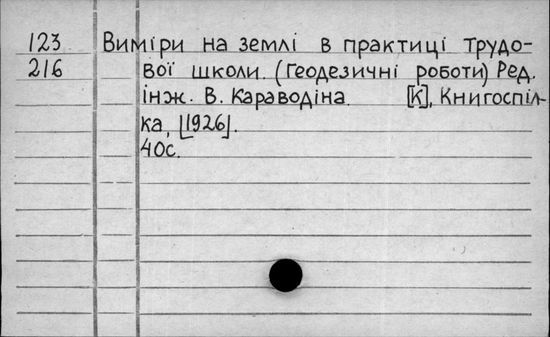 123 Виміри на землі в практиці трудо-
216 вої школи. (Геодезичні роботи) Ред.
інж. В. Караводіна. [К], Книгоспіл-
ка, [1926].
40с.